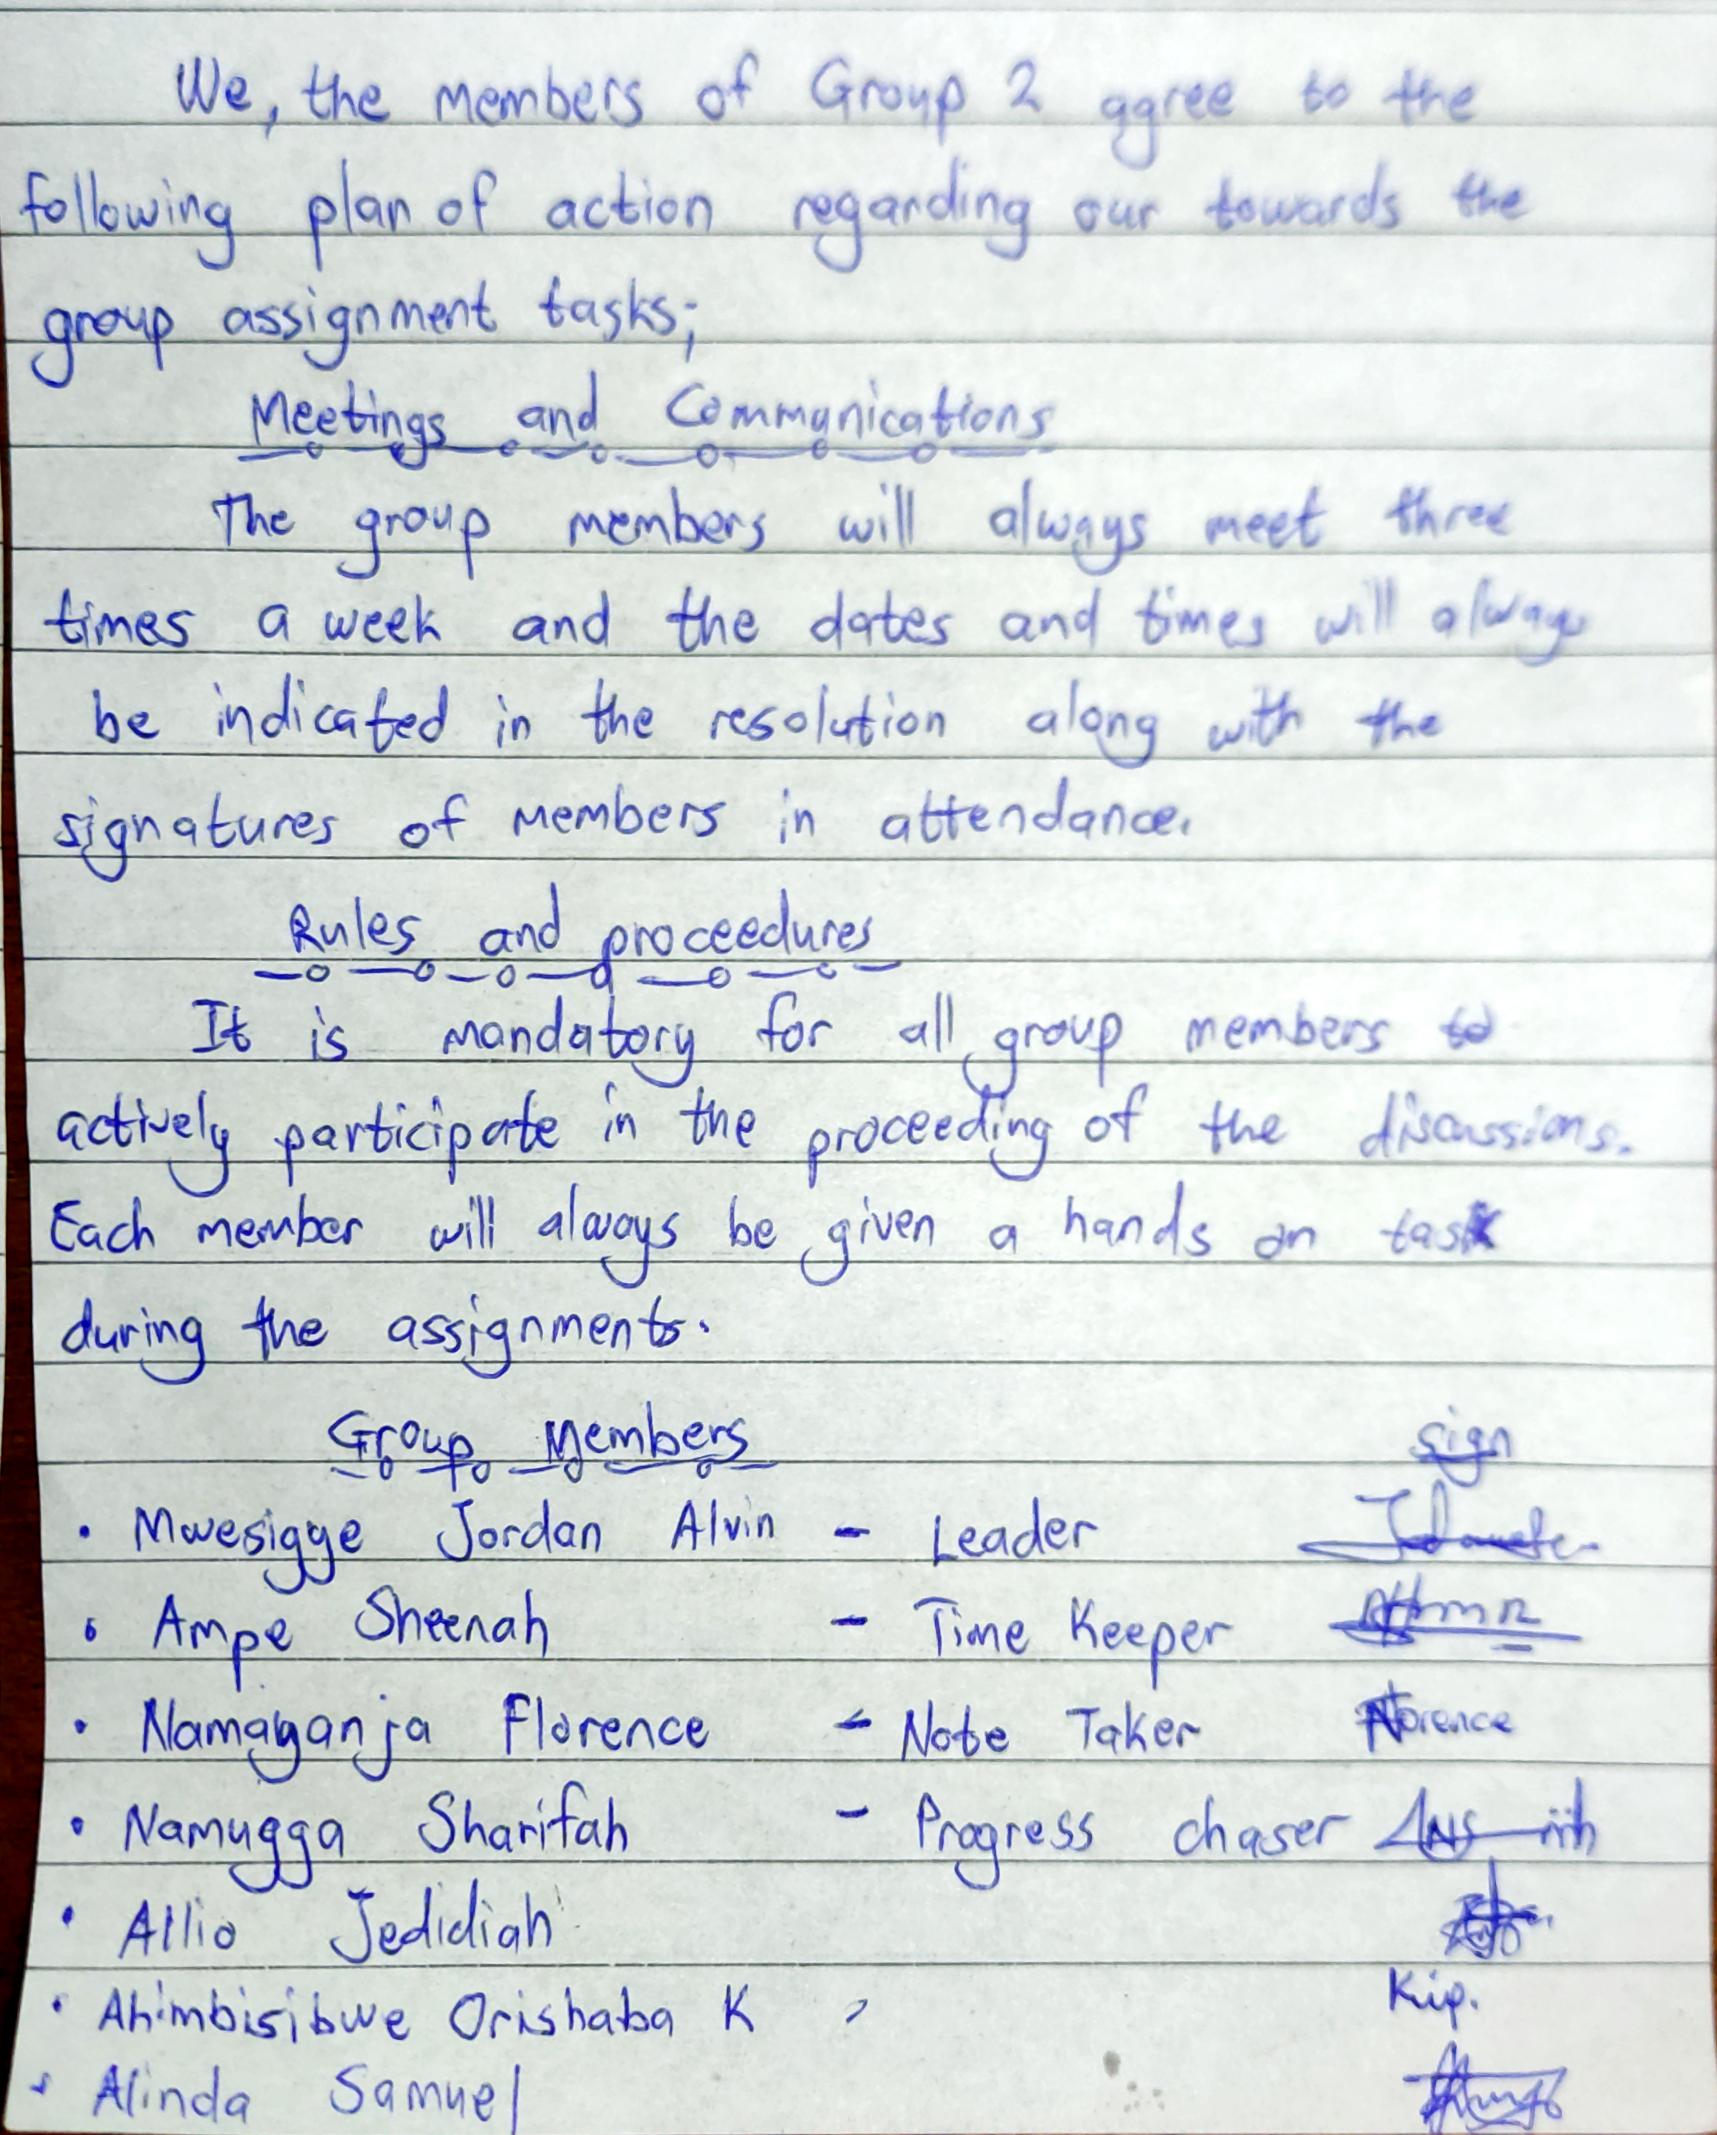 We, the members of Group 2 agree to the
following plan of action regarding our towards the
group assignment tasks;
Meetings and Communications
The group members will always meet three
times a week and the dates and times will always
be indicated in the resolution along with the
signatures of members in attendance.
Rules and proceedures
It is mandatory for all group members to
actively participate in the proceeding of the discussions.
Each member will always be given a hands on task
during the assignments.
Group Members sign
• Mwesigye Jordan Alvin - Leader
• Ampe Sheenah - Time Keeper
• Namayanja Florence - Note Taker Florence
• Namugga Sharifah - Progress chaser
• Allio Jedidiah
• Ahimbisibwe Orishaba K Kip.
• Alinda Samuel